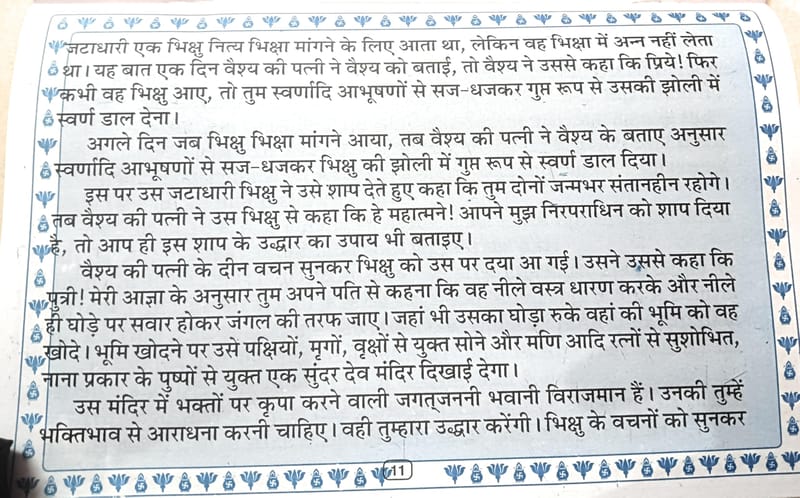 जटाधारी एक भिक्षु नित्य भिक्षा मांगने के लिए आता था, लेकिन वह भिक्षा में अन्न नहीं लेता
था। यह बात एक दिन वैश्य की पत्नी ने वैश्य को बताई, तो वैश्य ने उससे कहा कि प्रिये! फिर
कभी वह भिक्षु आए, तो तुम स्वर्णादि आभूषणों से सज-धजकर गुप्त रूप से उसकी झोली में
स्वर्ण डाल देना।
अगले दिन जब भिक्षु भिक्षा मांगने आया, तब वैश्य की पत्नी ने वैश्य के बताए अनुसार
स्वर्णादि आभूषणों से सज-धजकर भिक्षु की झोली में गुप्त रूप से स्वर्ण डाल दिया।
इस पर उस जटाधारी भिक्षु ने उसे शाप देते हुए कहा कि तुम दोनों जन्मभर संतानहीन रहोगे।
तब वैश्य की पत्नी ने उस भिक्षु से कहा कि हे महात्मने! आपने मुझ निरपराधिन को शाप दिया
है, तो आप ही इस शाप के उद्धार का उपाय भी बताइए।
वैश्य की पत्नी के दीन वचन सुनकर भिक्षु को उस पर दया आ गई। उसने उससे कहा कि
पुत्री! मेरी आज्ञा के अनुसार तुम अपने पति से कहना कि वह नीले वस्त्र धारण करके और नीले
ही घोड़े पर सवार होकर जंगल की तरफ जाए। जहां भी उसका घोड़ा रुके वहां की भूमि को वह
खोदे। भूमि खोदने पर उसे पक्षियों, मृगों, वृक्षों से युक्त सोने और मणि आदि रत्नों से सुशोभित,
नाना प्रकार के पुष्पों से युक्त एक सुंदर देव मंदिर दिखाई देगा।
उस मंदिर में भक्तों पर कृपा करने वाली जगत्जननी भवानी विराजमान हैं। उनकी तुम्हें
भक्तिभाव से आराधना करनी चाहिए। वही तुम्हारा उद्धार करेंगी। भिक्षु के वचनों को सुनकर
11